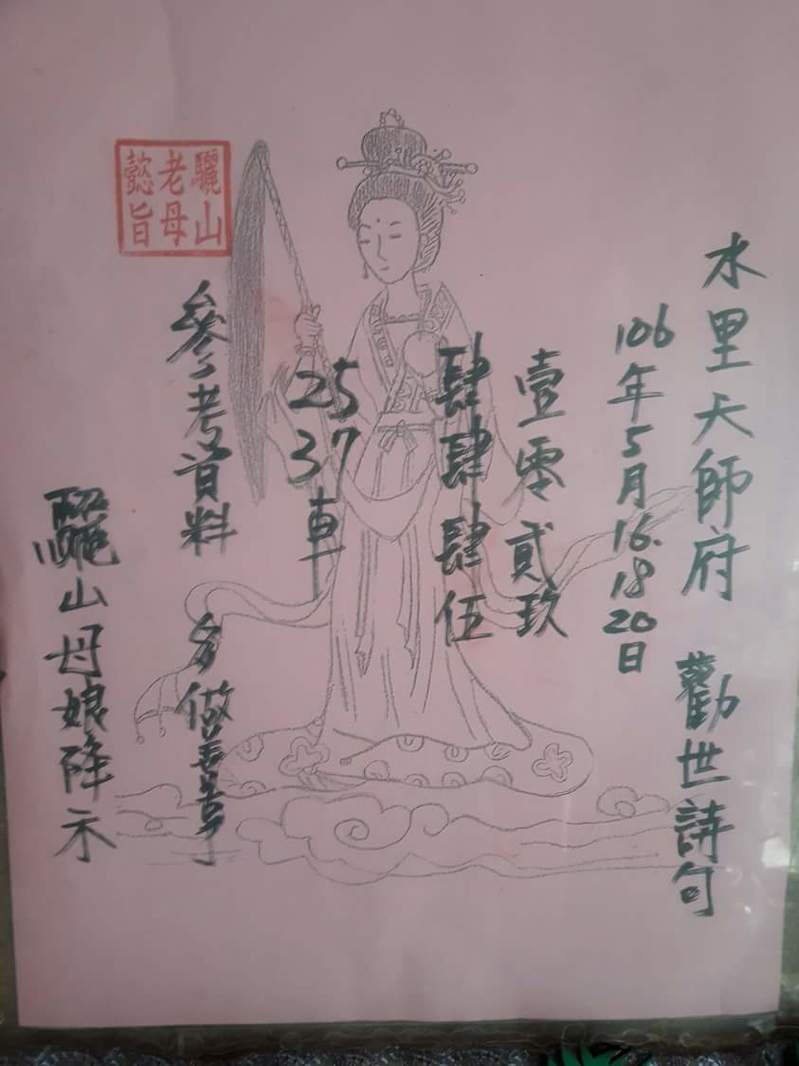 水里天師府 勸世詩句
106年5月16.18 20日
壹零貳玖
肆肆肆伍
25 37車
參考資料 多做善事
驪山母娘降示
驪山老母懿旨